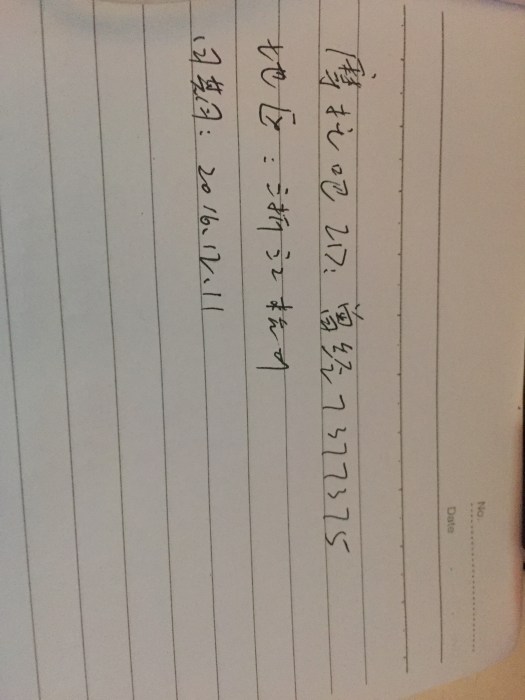 No.
Date
摩托吧 ID：曾经了377375
地区：浙江杭州
时间：2016.12.11